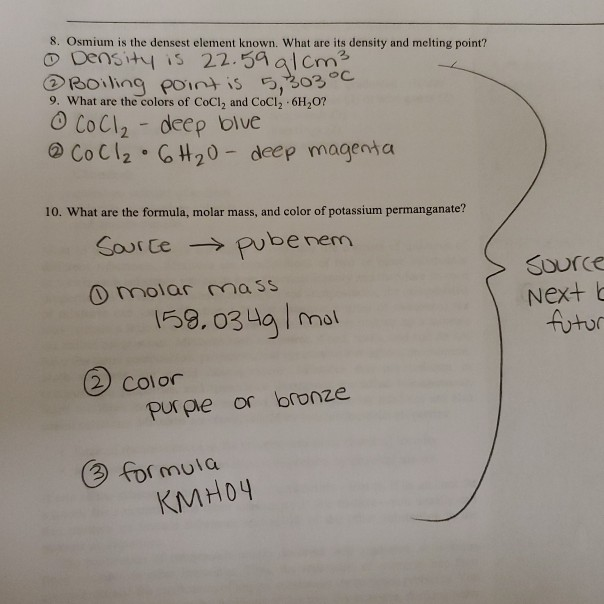 8. Osmium is the densest element known. What are its density and melting point?
① Density is 22.59 g/cm³
② Boiling point is 5,303°C
9. What are the colors of CoCl₂ and CoCl₂ · 6H₂O?
① CoCl₂ - deep blue
② CoCl₂ • 6H₂O - deep magenta
10. What are the formula, molar mass, and color of potassium permanganate?
Source → pubenem
① molar mass
158.034g/mol
② color
purple or bronze
③ formula
KMHO4
Source
Next b
futur